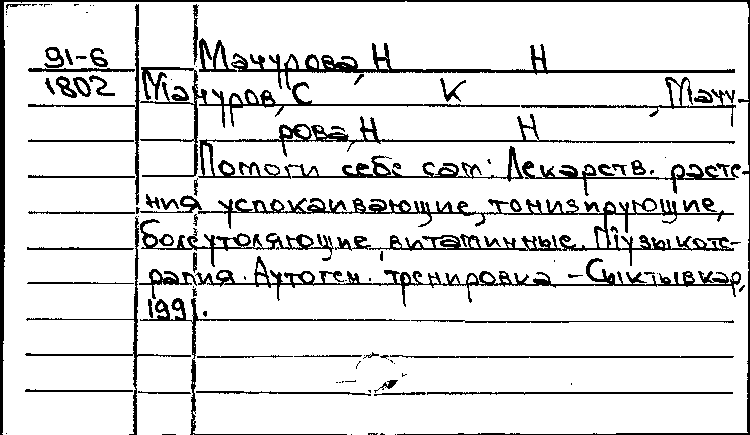 91-6 Мачурова, Н Н
1802 Мачуров, С К , Мачу-
рова, Н Н
Помоги себе сам: Лекарств. расте-
ния успокаивающие, тонизирующие,
болеутоляющие, витаминные. Музыкоте-
рапия. Аутоген. тренировка - Сыктывкар,
1991.